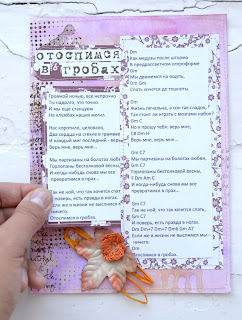 отоспимся
в гробах
Громкой ночью, все непрочно
Ты надолго, это точно.
И мы еще станцуем
На службах наших могил.
Нас коротило, целовало,
Два сердца на стекле в трамвае
И каждый миг последний - верь
Верь мне, верь мне...
Мы партизаны на болотах любви
Горлопаны беспалевной весны,
И когда-нибудь снова мы все
превратимся в прах...
Так не ной, что так хочется спать
и поверь, есть правда в ногах.
Если же в жизни не выспимся мы -
ничего.
Отоспимся в гробах.
Dm
Как медузы после шторма
В предрассветном хлороформе
Gm
Мы движемся на ощупь,
Dm Gm
Спать хочется до тошноты
Dm
Жизнь печальна, а сон так сладок,
Так стоит ли играть с мозгами
Gm C7
Но я прошу тебя: верь мне,
C# Dm H
Верь мне, верь мне...
Gm C7
Мы партизаны на болотах любви,
Gm C7
Горлопаны весны,
F Dm Am C
И когда-нибудь снова мы все
превратимся в прах...
Gm C7
Так не ной, что так хочется спать,
Gm C7
И поверь, есть правда в ногах.
Dm Dm+7 Dm7 Dm6 A7
Если же в жизни не выспимся мы -
ничего.
Dm
Отоспимся в гробах.